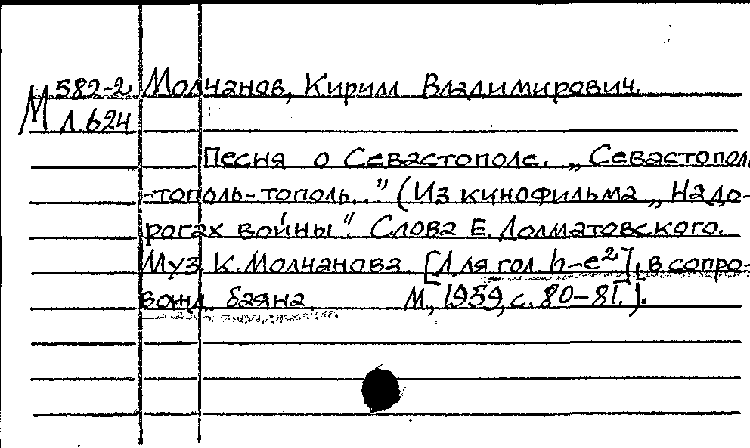 М 582-2 Молчанов, Кирилл Владимирович.
Л.624
Песня о Севастополе. „Севастопол
-тополь-тополь..." (Из кинофильма „На до-
рогах войны". Слова Е. Долматовского.
Муз. К. Молчанова. [Для гол. h-e²], в сопро-
вожд. баяна. М., 1959, с. 80-81.].